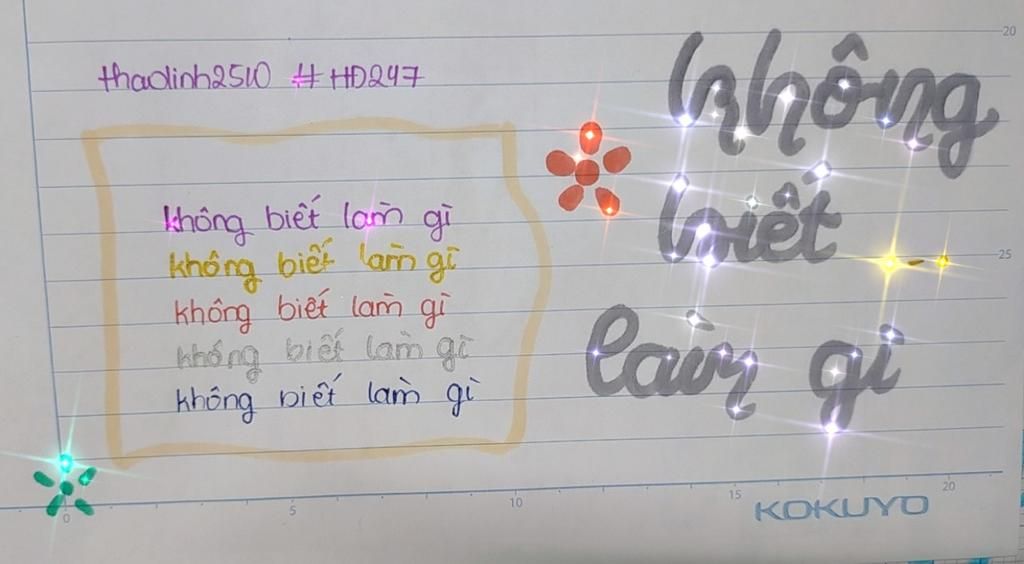 thaolinh2510 # HD247
không biết làm gì
không biết làm gì
không biết làm gì
không biết làm gì
không biết làm gì
không
biết
làm gì
20
25
0 5 10 15 20
KOKUYO